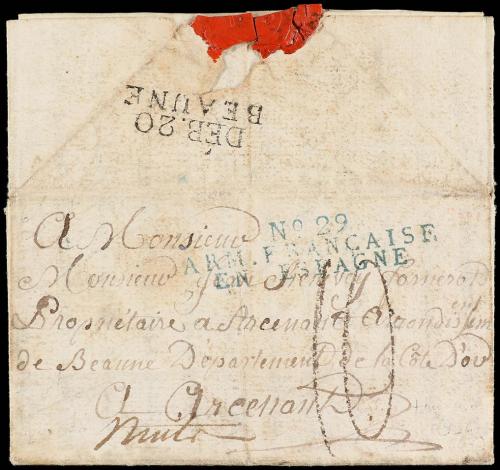 DEB. 20
BEAUNE
No. 29
ARM. FRANCAISE
EN ESPAGNE
A Monsieur
Monsieur
Propriétaire a Arcenant
de Beaune Département de la Côte D'or
A Arcenant